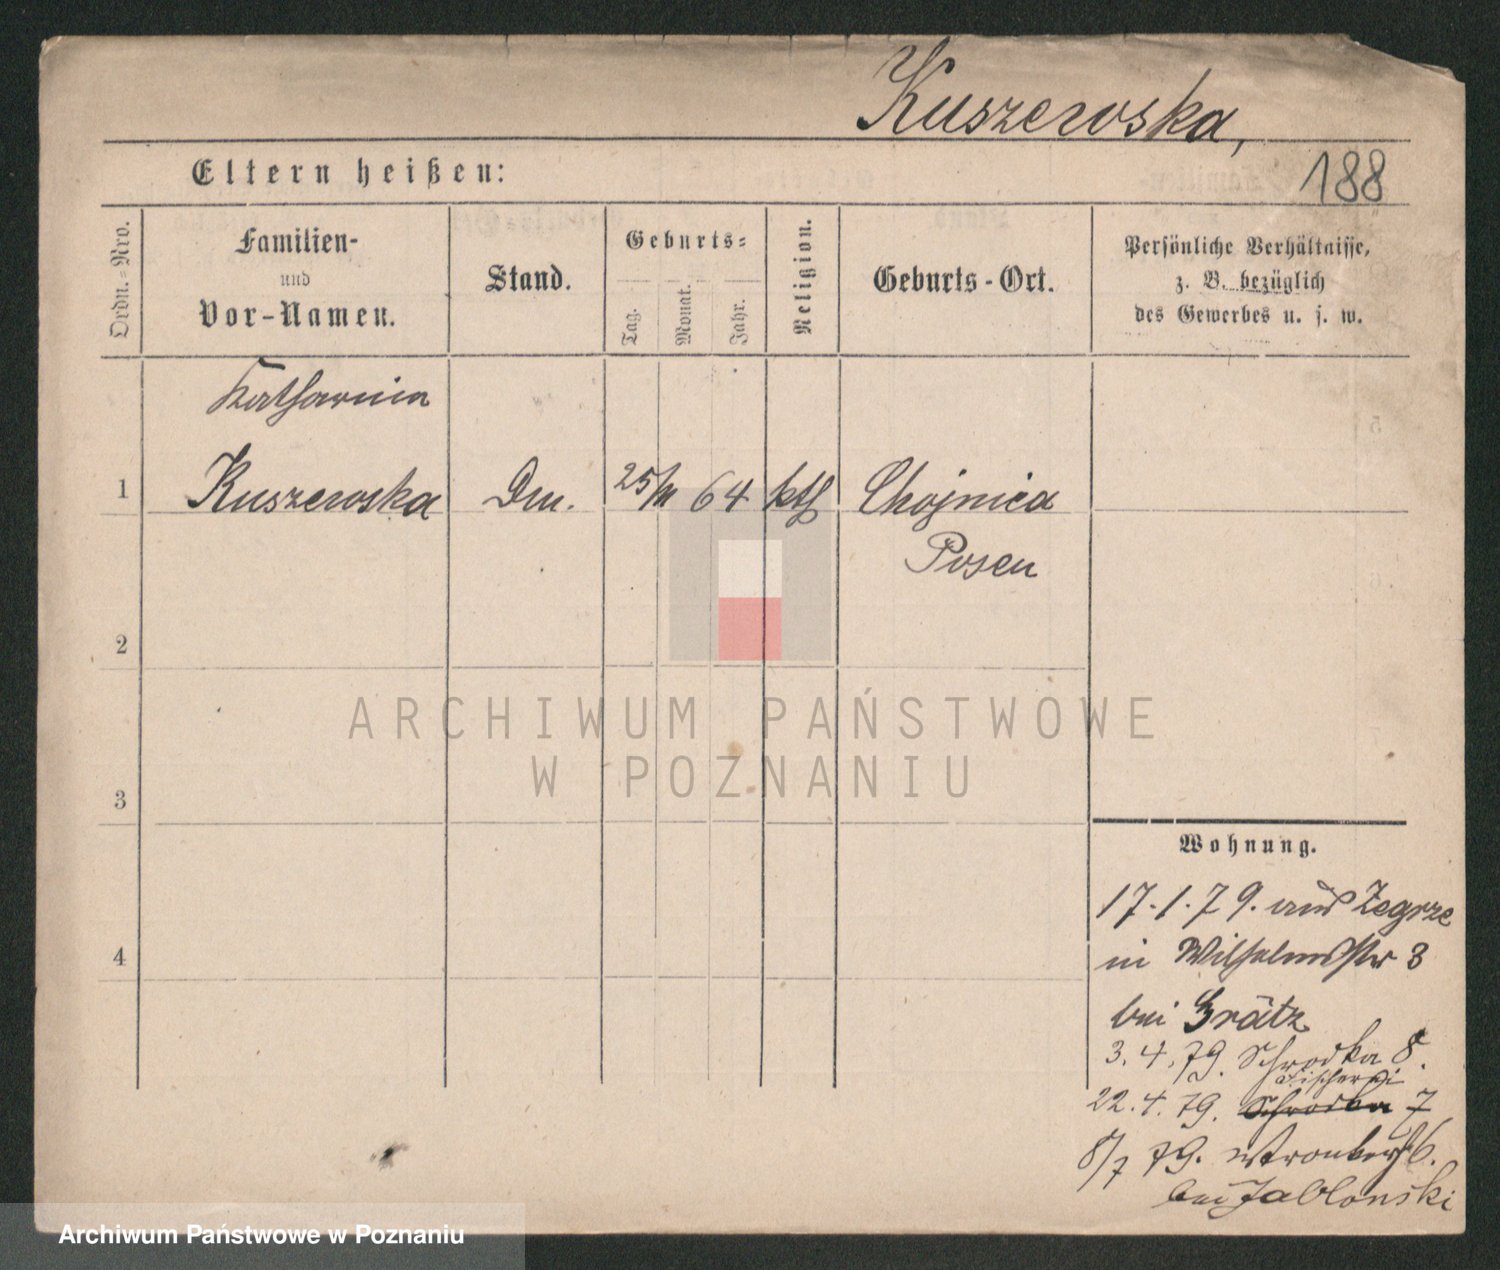 Kuszewska,
Eltern heißen:
188
Ordn.=Nro.
Familien-
und
Vor-Namen.
Stand.
Geburts=
Tag.
Monat.
Jahr.
Religion.
Geburts-Ort.
Persönliche Verhältnisse,
z. B. bezüglich
des Gewerbes u. s. w.
Katharina
1 Kuszewska Dm. 25/11 64 kth Chojnica
Posen
2
ARCHIWUM PAŃSTWOWE
W POZNANIU
3
Wohnung.
17.1.79. aus Zegrze
4
in Wilhelmsstr 3
bei Grätz
3.4.79. Schrodka 8.
Fischerei
22.4.79. Schrodka 7
8/7 79. Wronkerst 6.
bei Jablonski
Archiwum Państwowe w Poznaniu